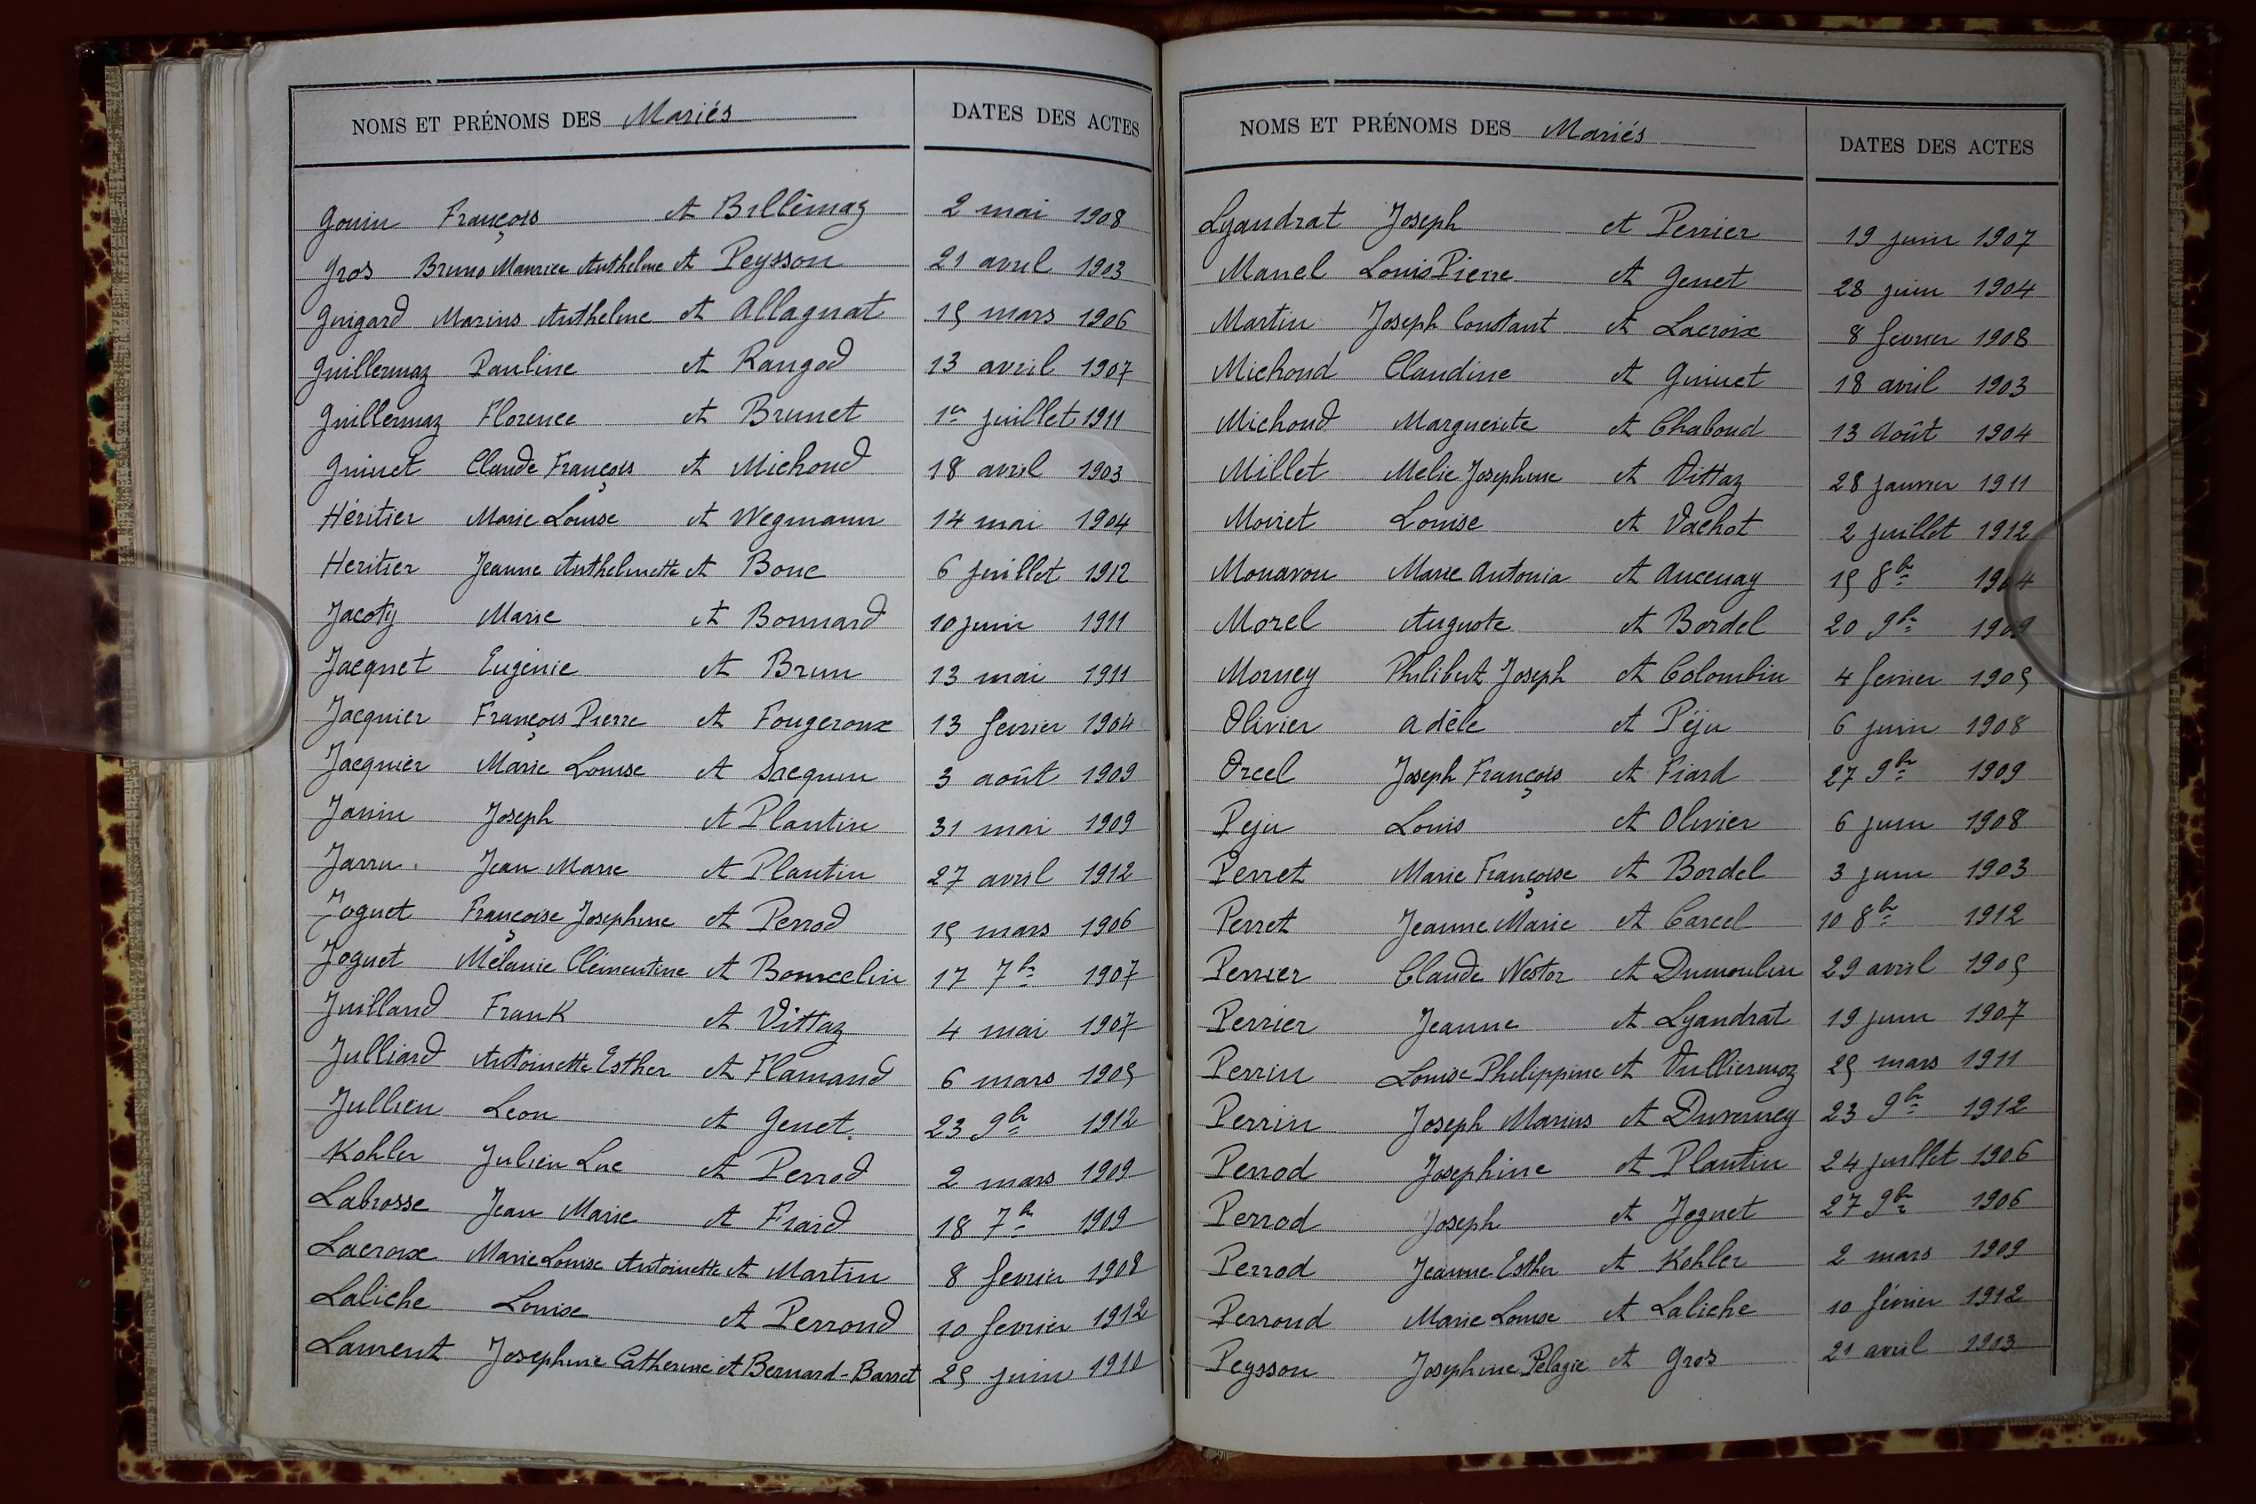 NOMS ET PRÉNOMS DES Mariés DATES DES ACTES
Gouin François et Billémaz 2 mai 1908
Gros Bruno Maurice Anthelme et Peysson 21 avril 1903
Guigard Marius Anthelme et Allagnat 15 mars 1906
Guillermaz Pauline et Rangod 13 avril 1907
Guillermaz Florence et Brunet 1er juillet 1911
Guinet Claude François et Michoud 18 avril 1903
Héritier Marie Louise et Wegmann 14 mai 1904
Heritier Jeanne Anthelmette et Bouc 6 juillet 1912
Jacoty Marie et Bonnard 10 juin 1911
Jacquet Eugénie et Brun 13 mai 1911
Jacquier François Pierre et Fougeroux 13 fevrier 1904
Jacquier Marie Louise et Sacquin 3 août 1909
Janin Joseph et Plantin 31 mai 1909
Jarru Jean Marie et Plantin 27 avril 1912
Joguet Françoise Josephine et Perrod 15 mars 1906
Joguet Mélanie Clémentine et Bouvcelin 17 7bre 1907
Juilland Frank et Vittaz 4 mai 1907
Julliard Antoinette Esther et Flamand 6 mars 1905
Jullien Leon et Genet 23 9bre 1912
Kohler Julien Luc et Perrod 2 mars 1909
Labrosse Jean Marie et Friard 18 7bre 1909
Lacroix Marie Louise Antoinette et Martin 8 fevrier 1908
Laliche Louise et Perroud 10 fevrier 1912
Laurent Josephine Catherine et Bernard-Barret 25 juin 1910
NOMS ET PRÉNOMS DES Mariés DATES DES ACTES
Lyandrat Joseph et Perrier 19 juin 1907
Manel Louis Pierre et Genet 28 juin 1904
Martin Joseph Constant et Lacroix 8 fevrier 1908
Michoud Claudine et Guinet 18 avril 1903
Michoud Marguerite et Chaboud 13 Août 1904
Millet Melie Josephine et Vittaz 28 janvier 1911
Moiret Louise et Vachot 2 juillet 1912
Monavon Marie Antonia et Aucenay 15 8bre 1904
Morel Auguste et Bordel 20 9bre 1909
Morney Philibert Joseph et Colombin 4 fevrier 1905
Olivier Adèle et Péju 6 juin 1908
Orcel Joseph François et Fiard 27 9bre 1909
Peju Louis et Olivier 6 juin 1908
Perret Marie Françoise et Bordel 3 juin 1903
Perret Jeanne Marie et Carcel 10 8bre 1912
Perrier Claude Nestor et Dumoulin 29 avril 1905
Perrier Jeanne et Lyandrat 19 juin 1907
Perrin Louise Philippine et Vulliermoz 25 mars 1911
Perrin Joseph Marius et Duverney 23 9bre 1912
Perrod Josephine et Plantin 24 juillet 1906
Perrod Joseph et Joguet 27 9bre 1906
Perrod Jeanne Esther et Kohler 2 mars 1909
Perroud Marie Louise et Laliche 10 février 1912
Peysson Josephine Pelagie et Gros 21 avril 1903